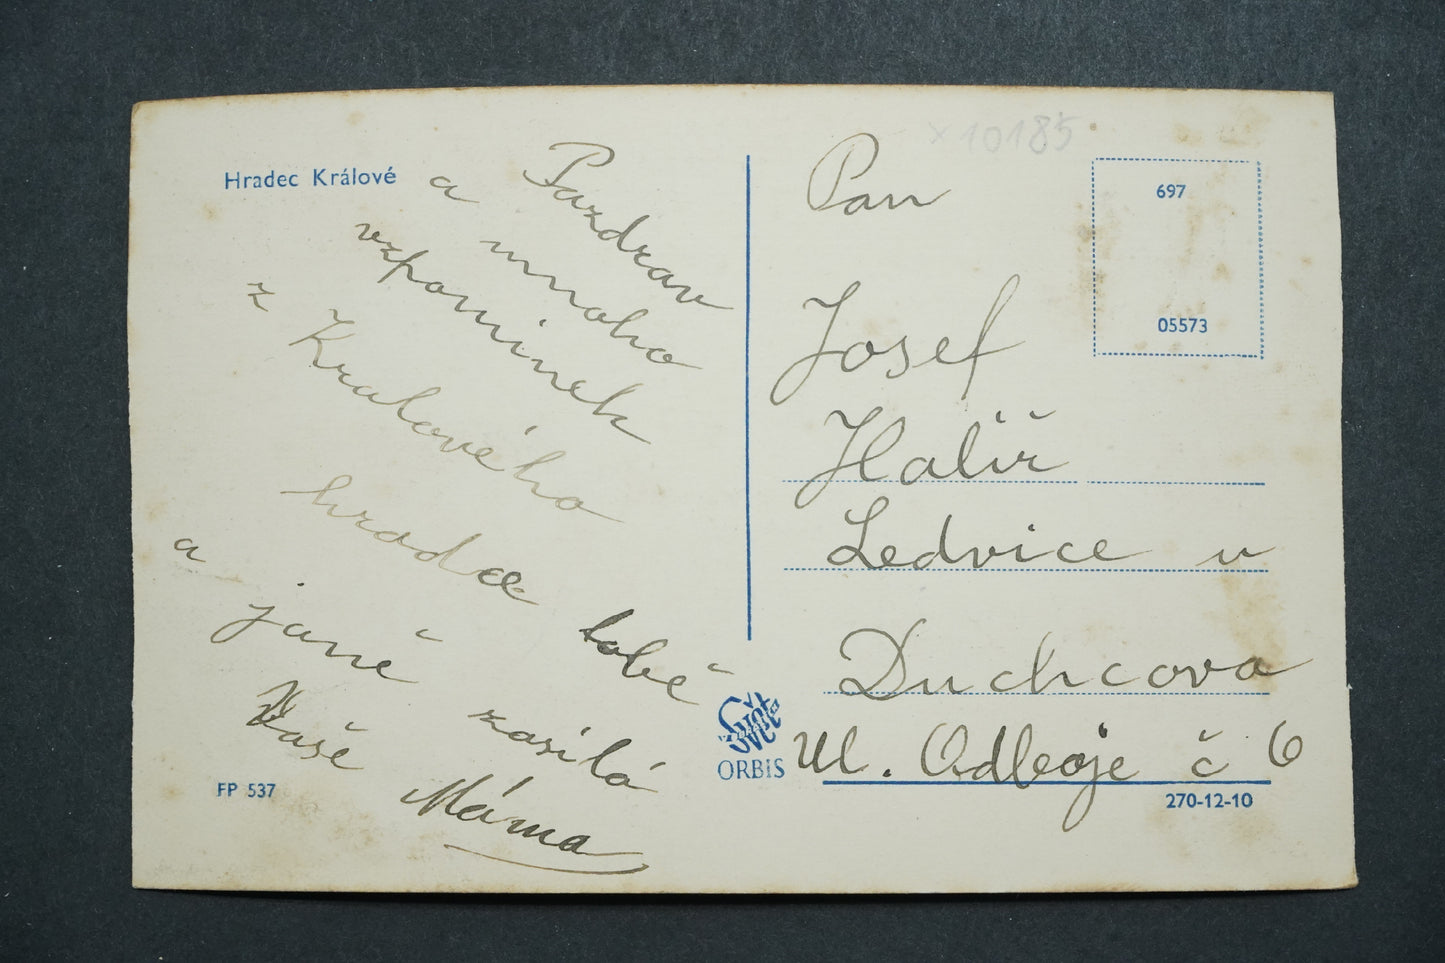 Hradec Králové
Pazdrav
a mnoho
vzpominek
z Kralového
hradce tobě
a janě zasilá
Vaše Máma
FP 537
x 10185
Pan
697
05573
Josef
Halíř
Ledvice u
Duchcova
Ul. Odboje č 6
ORBIS
270-12-10